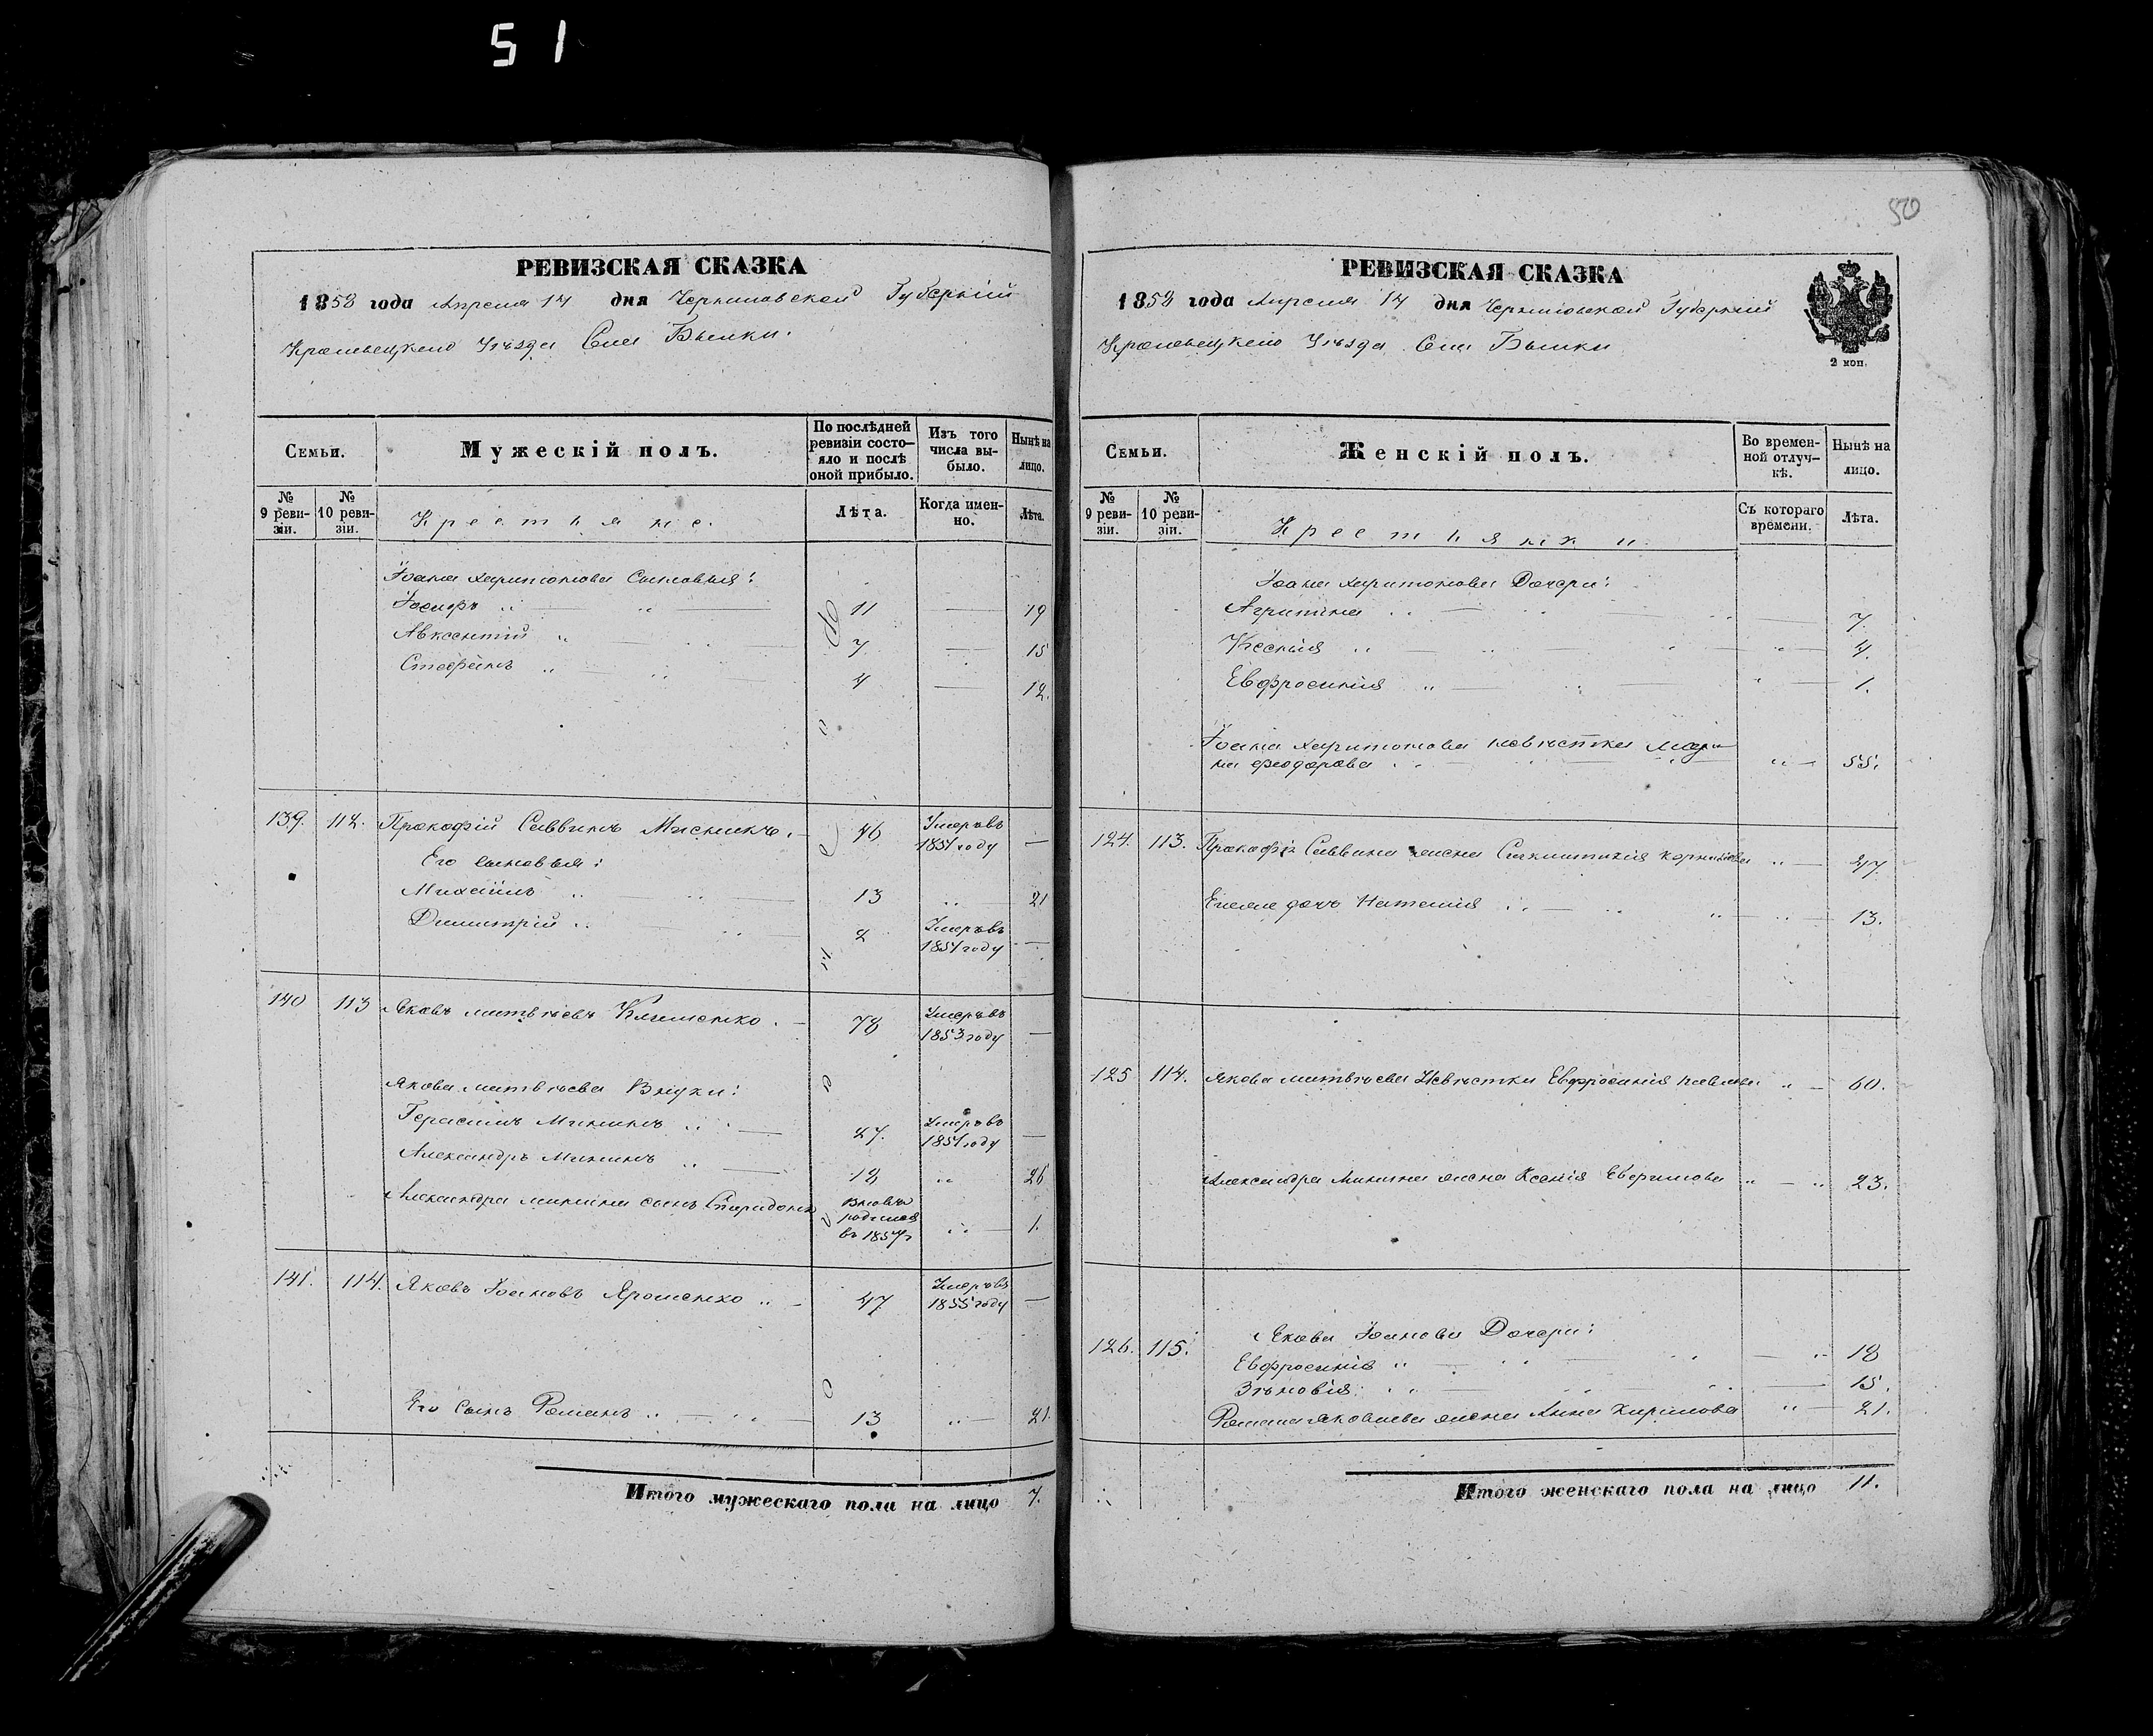 51
50
РЕВИЗСКАЯ СКАЗКА
1858 года Апреля 14 дня Черниговской Губерніи
Кролевецкаго Уѣзда Села Быики.
Семьи.
Мужескій полъ.
По послѣдней ревизіи состояло и послѣ оной прибыло.
Изъ того числа выбыло.
Нынѣ на лицо.
№ 9 ревизіи.
№ 10 ревизіи.
Крестьяне.
Лѣта.
Когда именно.
Лѣта.
Іоана Харитонова Сыновья:
Іосифъ „ — „ 11 — 19
Авксентій „ — 7 — 15
Стефанъ „ — „ 4 — 12.
139. 112. Прокофій Саввинъ Мисникъ. — 46 Умеръ въ 1851 году —
Его сыновья:
Михаилъ „ — „ — 13 „ — 21
Димитрій „ — „ — 2 Умеръ въ 1851 году —
140 113 Яковъ Матвѣевъ Клименко. — 78 Умеръ въ 1853 году —
Якова Матвѣева Внуки:
Герасимъ Мининъ „ — 27. Умеръ въ 1851 году —
Александръ Мининъ „ — 18 „ 26
Александра Минина сынъ Спиридонъ Вновь родился въ 1857 г „ — 1.
141. 114. Яковъ Іоановъ Яроменко „ — 47 Умеръ въ 1855 году —
Его Сынъ Романъ „ — „ — 13 „ — 21.
Итого мужескаго пола на лицо 7.
РЕВИЗСКАЯ СКАЗКА
1858 года Апреля 14 дня Черниговской Губерніи
Кролевецкаго Уѣзда Села Быики
2 коп.
Семьи.
Женскій полъ.
Во временной отлучкѣ.
Нынѣ на лицо.
№ 9 ревизіи.
№ 10 ревизіи.
Крестьянки.
Съ котораго времени.
Лѣта.
Іоана Харитонова Дочери:
Агрипина „ — „ — 7.
Ксенія „ — „ — „ — 4.
Евфросинія „ — „ — „ — 1.
Іоана Харитонова невѣстка Мари-
на Феодорова „ — „ — 55.
124. 113. Прокофія Саввина жена Корниліева „ — 47.
Егоже дочь Наталія „ — „ — 13.
125 114. Якова Матвѣева Невѣстка Евфросинія Павлова „ — 60.
Александра Минина жена Ксенія Ефимова „ — „ 23.
126. 115. Якова Іоанова Дочери:
Евфросинія „ — „ — „ 18
Зѣновія „ — „ — 15.
Романа Яковлева жена Анна Кирилова „ — 21.
Итого женскаго пола на лицо 11.